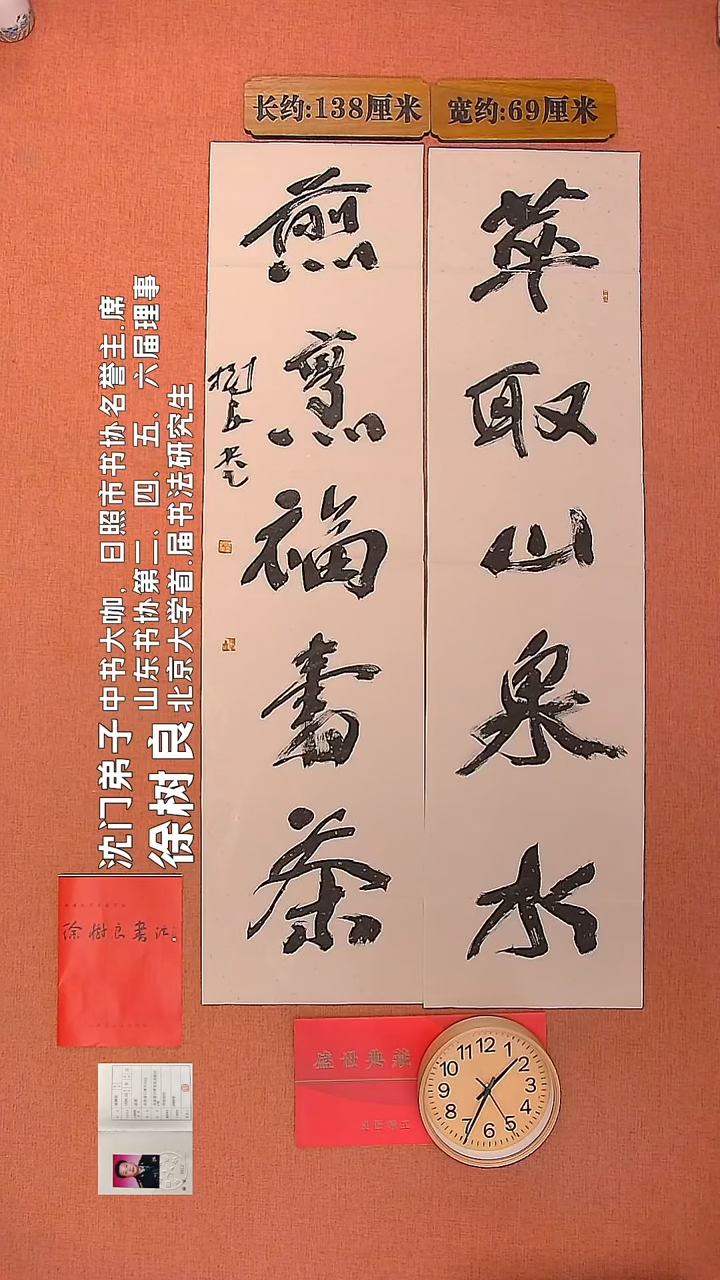 长约:138厘米
宽约:69厘米
萃取山泉水
煎烹福壽茶
樹良
沈门弟子 中书大咖，日照市书协名誉主.席
山东书协第三、四、五、六届理事
徐树良 北京大学首.届书法研究生
徐樹良書法
盛世典藏
12
1
2
3
4
5
6
7
8
9
10
11